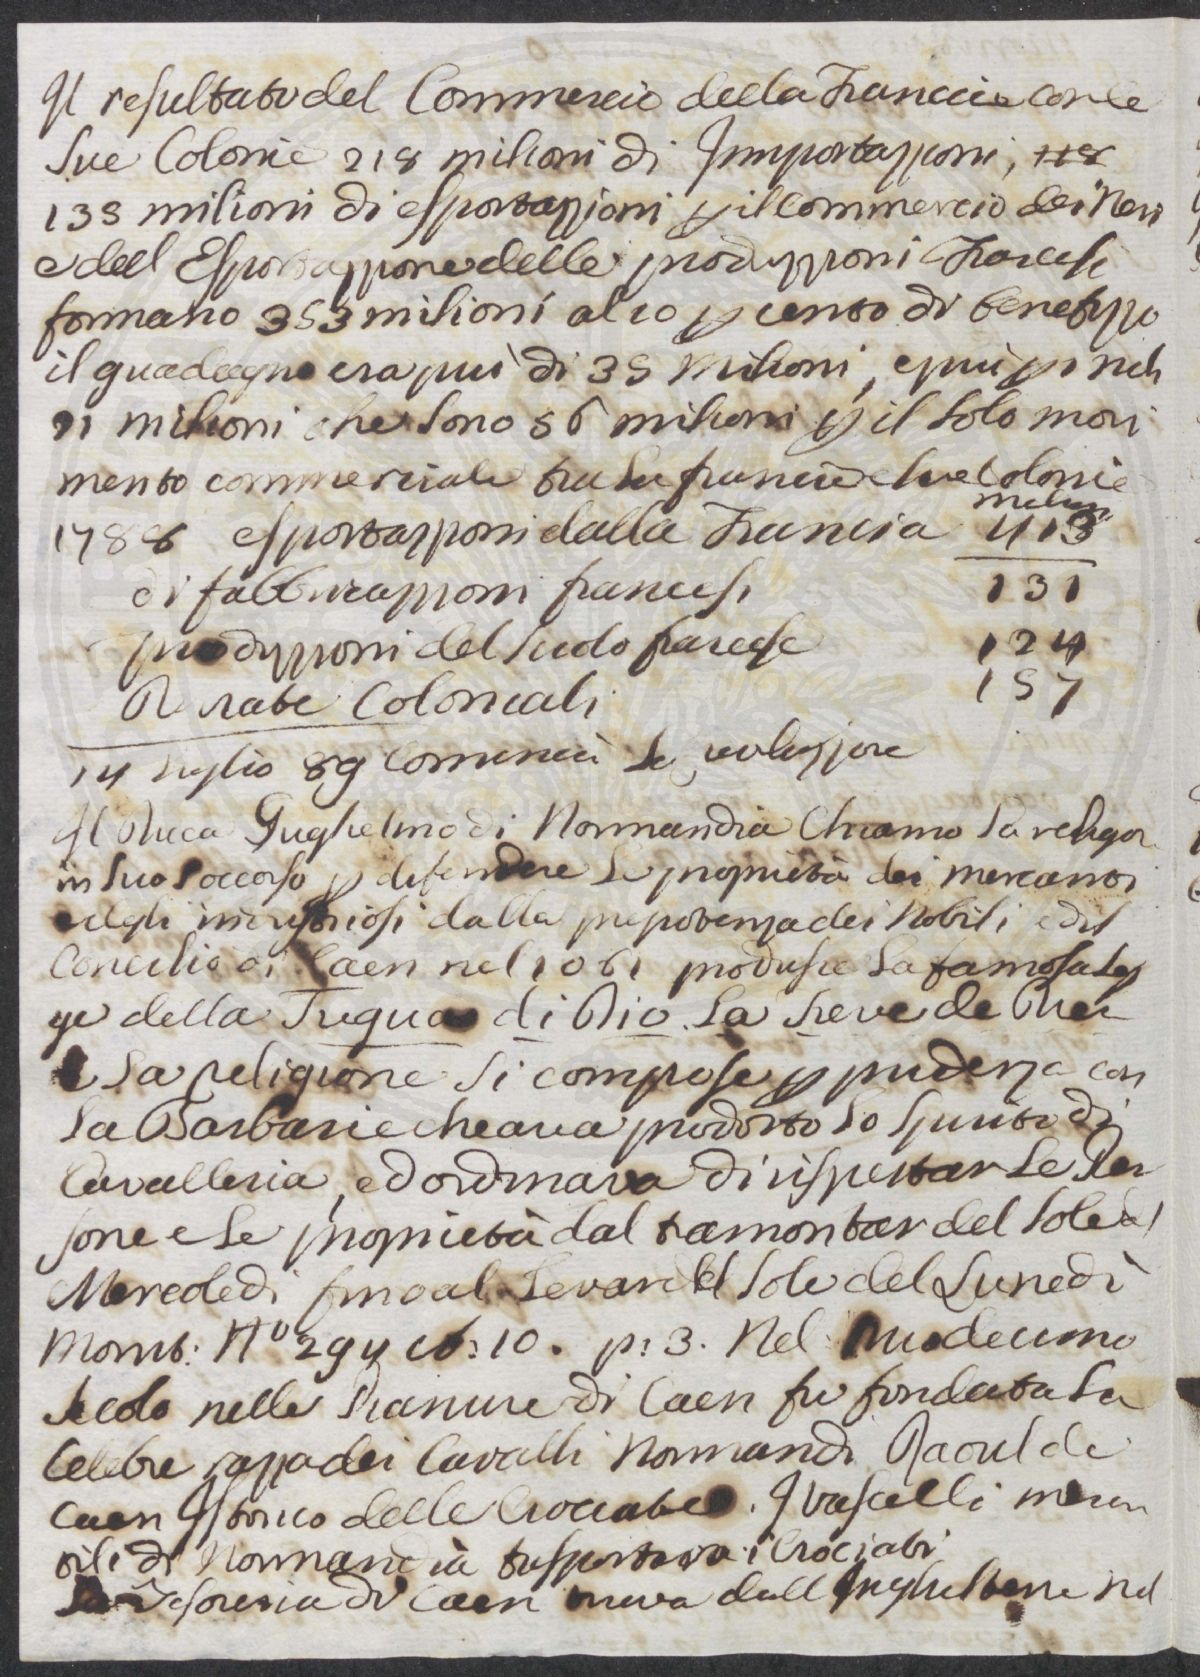 Il resultato del Commercio della Francia con le
sue Colonie 218 milioni di Importazzioni,
135 milioni di esportazzioni p il Commercio dei Neri
e dell Esportazzione delle produzzioni Francesi
formano 353 milioni al 10 p cento di benefizzo
il guadagno era piu di 35 milioni, e piu p
21 milioni che sono 56 milioni p il solo movi
mento commerciale tra la francia e sue Colonie
milioni
1788 esportazzoni dalla Francia 413
di fabbricazzoni francesi 131
produzzioni del suolo francese 124
Derrate Coloniali 157
14 Luglio 89 Cominciò la revoluzzione
Il Duca Guglielmo di Normandia Chiamo la religion
in suo soccorso p difendere le proprietà dei mercanti
e degli industriosi dalla prepotenza dei Nobili ed il
Concilio di Caen nel 1061 produsse la famosa Leg
ge della Tregua di Dio. La Treve de Dieu
La religione si compose p prudenza con
la Barbarie che avea prodotto lo spirito di
Cavalleria, ed ordinava di rispettar le Per
sone e le proprietà dal tramontar del sole del
Mercoledi fino al levar del sole del Lunedì
Monit: No 294 10. p: 3. Nel undecimo
secolo nelle Pianure di Caen fu fondata la
Celebre razza dei Cavalli Normandi Raoul de
Caen Istorico delle Crociate. I vascelli mercan
tili di Normandia trasportava i Crociati
La Tesoreria di Caen dall Inghilterra nel